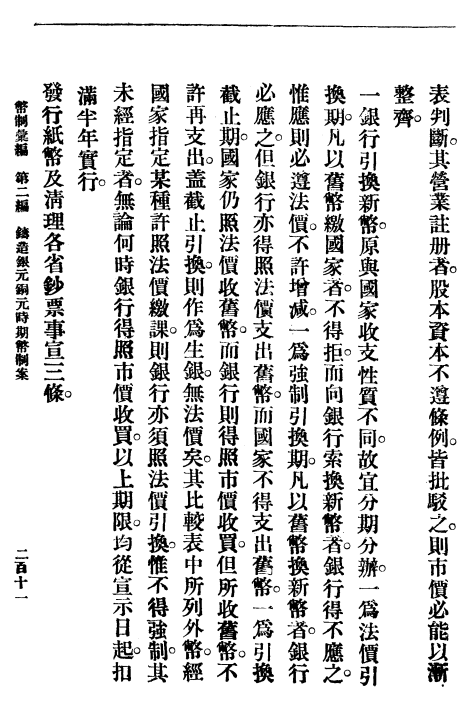 表判斷。其營業註册者。股本資本不遵條例。皆批駁之。則市價必能以漸
整齊。
一銀行引換新幣。原與國家收支性質不同。故宜分期分辦。一爲法價引
換期。凡以舊幣繳國家者。不得拒。而向銀行索換新幣者。銀行得不應之。
惟應則必遵法價。不許增减。一爲強制引換期。凡以舊幣換新幣者。銀行
必應之。但銀行亦得照法價支出舊幣。而國家不得支出舊幣。一爲引換
截止期。國家仍照法價收舊幣。而銀行則得照市價收買。但所收舊幣。不
許再支出。蓋截止引換。則作爲生銀。無法價矣。其比較表中所列外幣。經
國家指定某種許照法價繳課。則銀行亦須照法價引換。惟不得強制。其
未經指定者。無論何時銀行得照市價收買。以上期限。均從宣示日起。扣
滿半年實行。
發行紙幣及淸理各省鈔票事宜三條。
幣制彙編　第二編　鑄造銀元銅元時期幣制案
二百十一